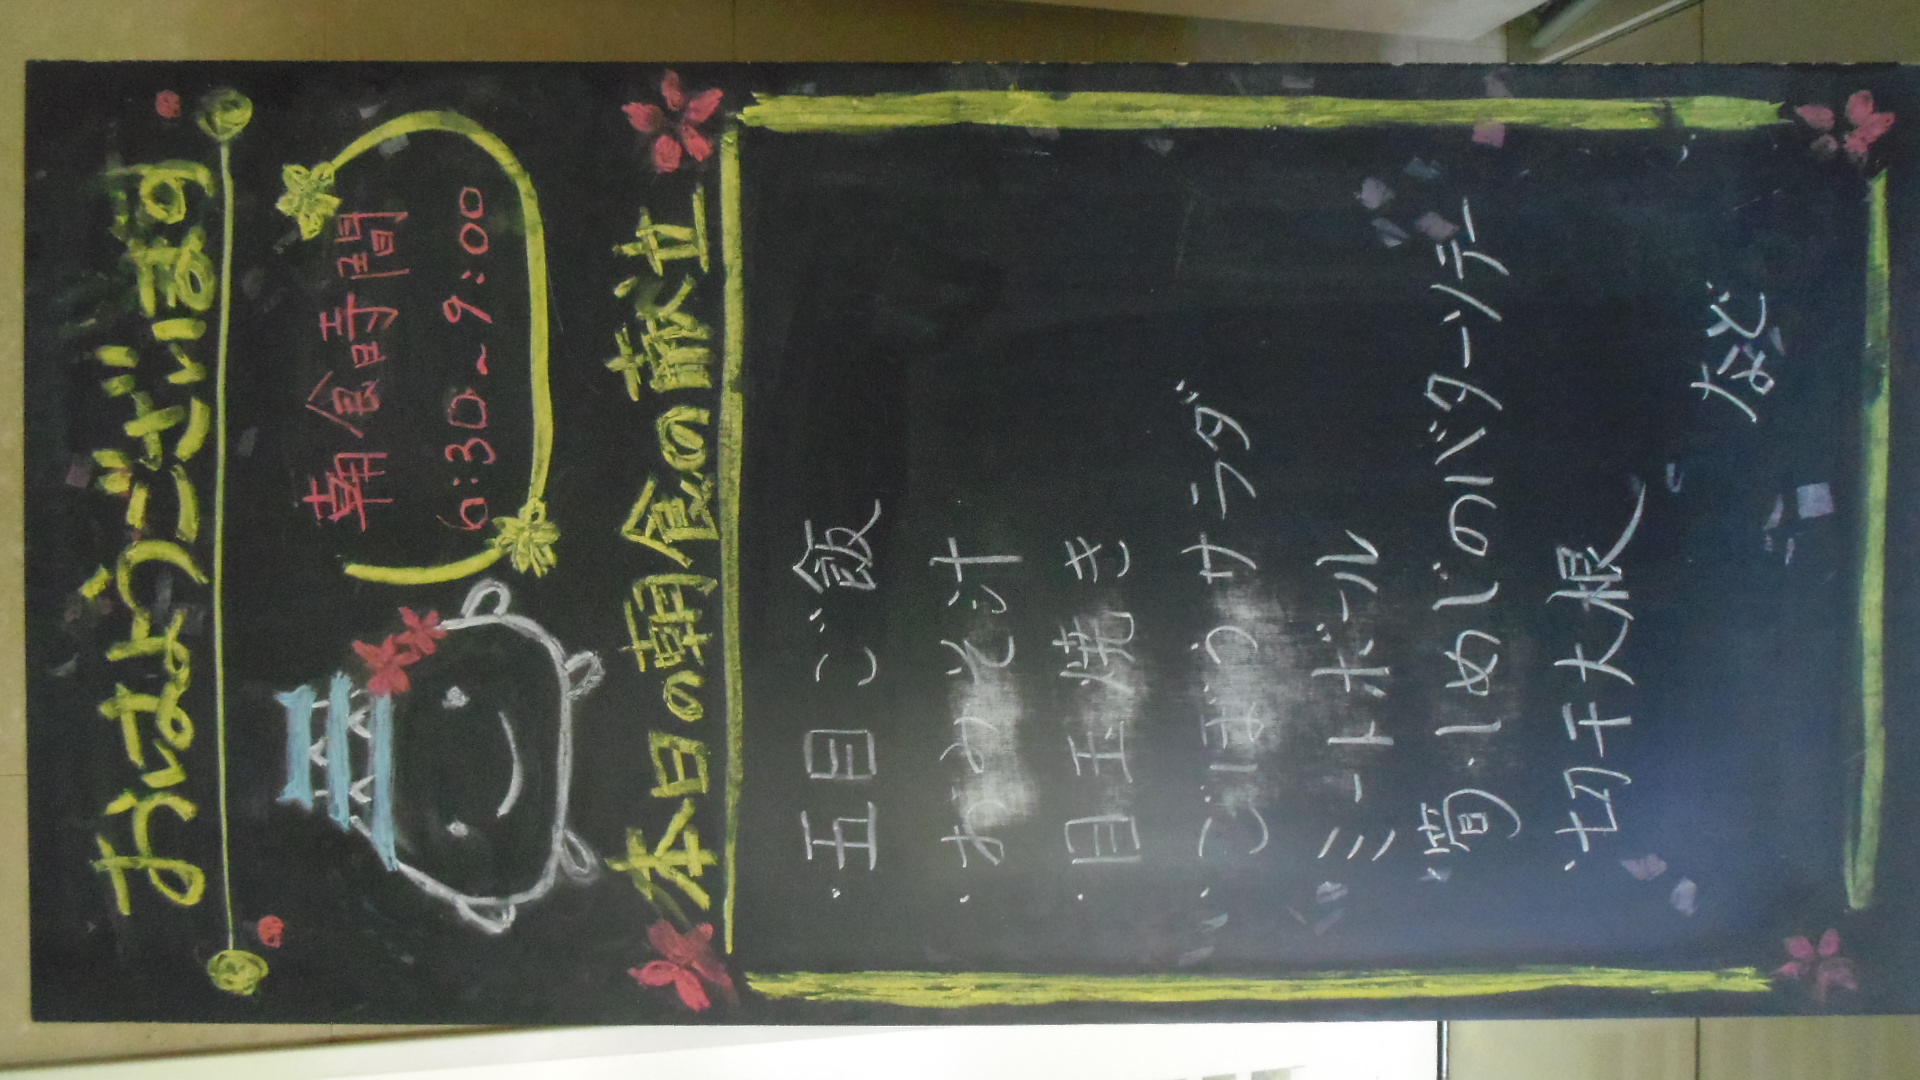 おはようございます
朝食時間
6:30~9:00
本日の朝食の献立
・五目ご飯
・おみそ汁
・目玉焼き
・ごぼうサラダ
・ミートボール
・筍・しめじのバターソテー
・切干大根
など